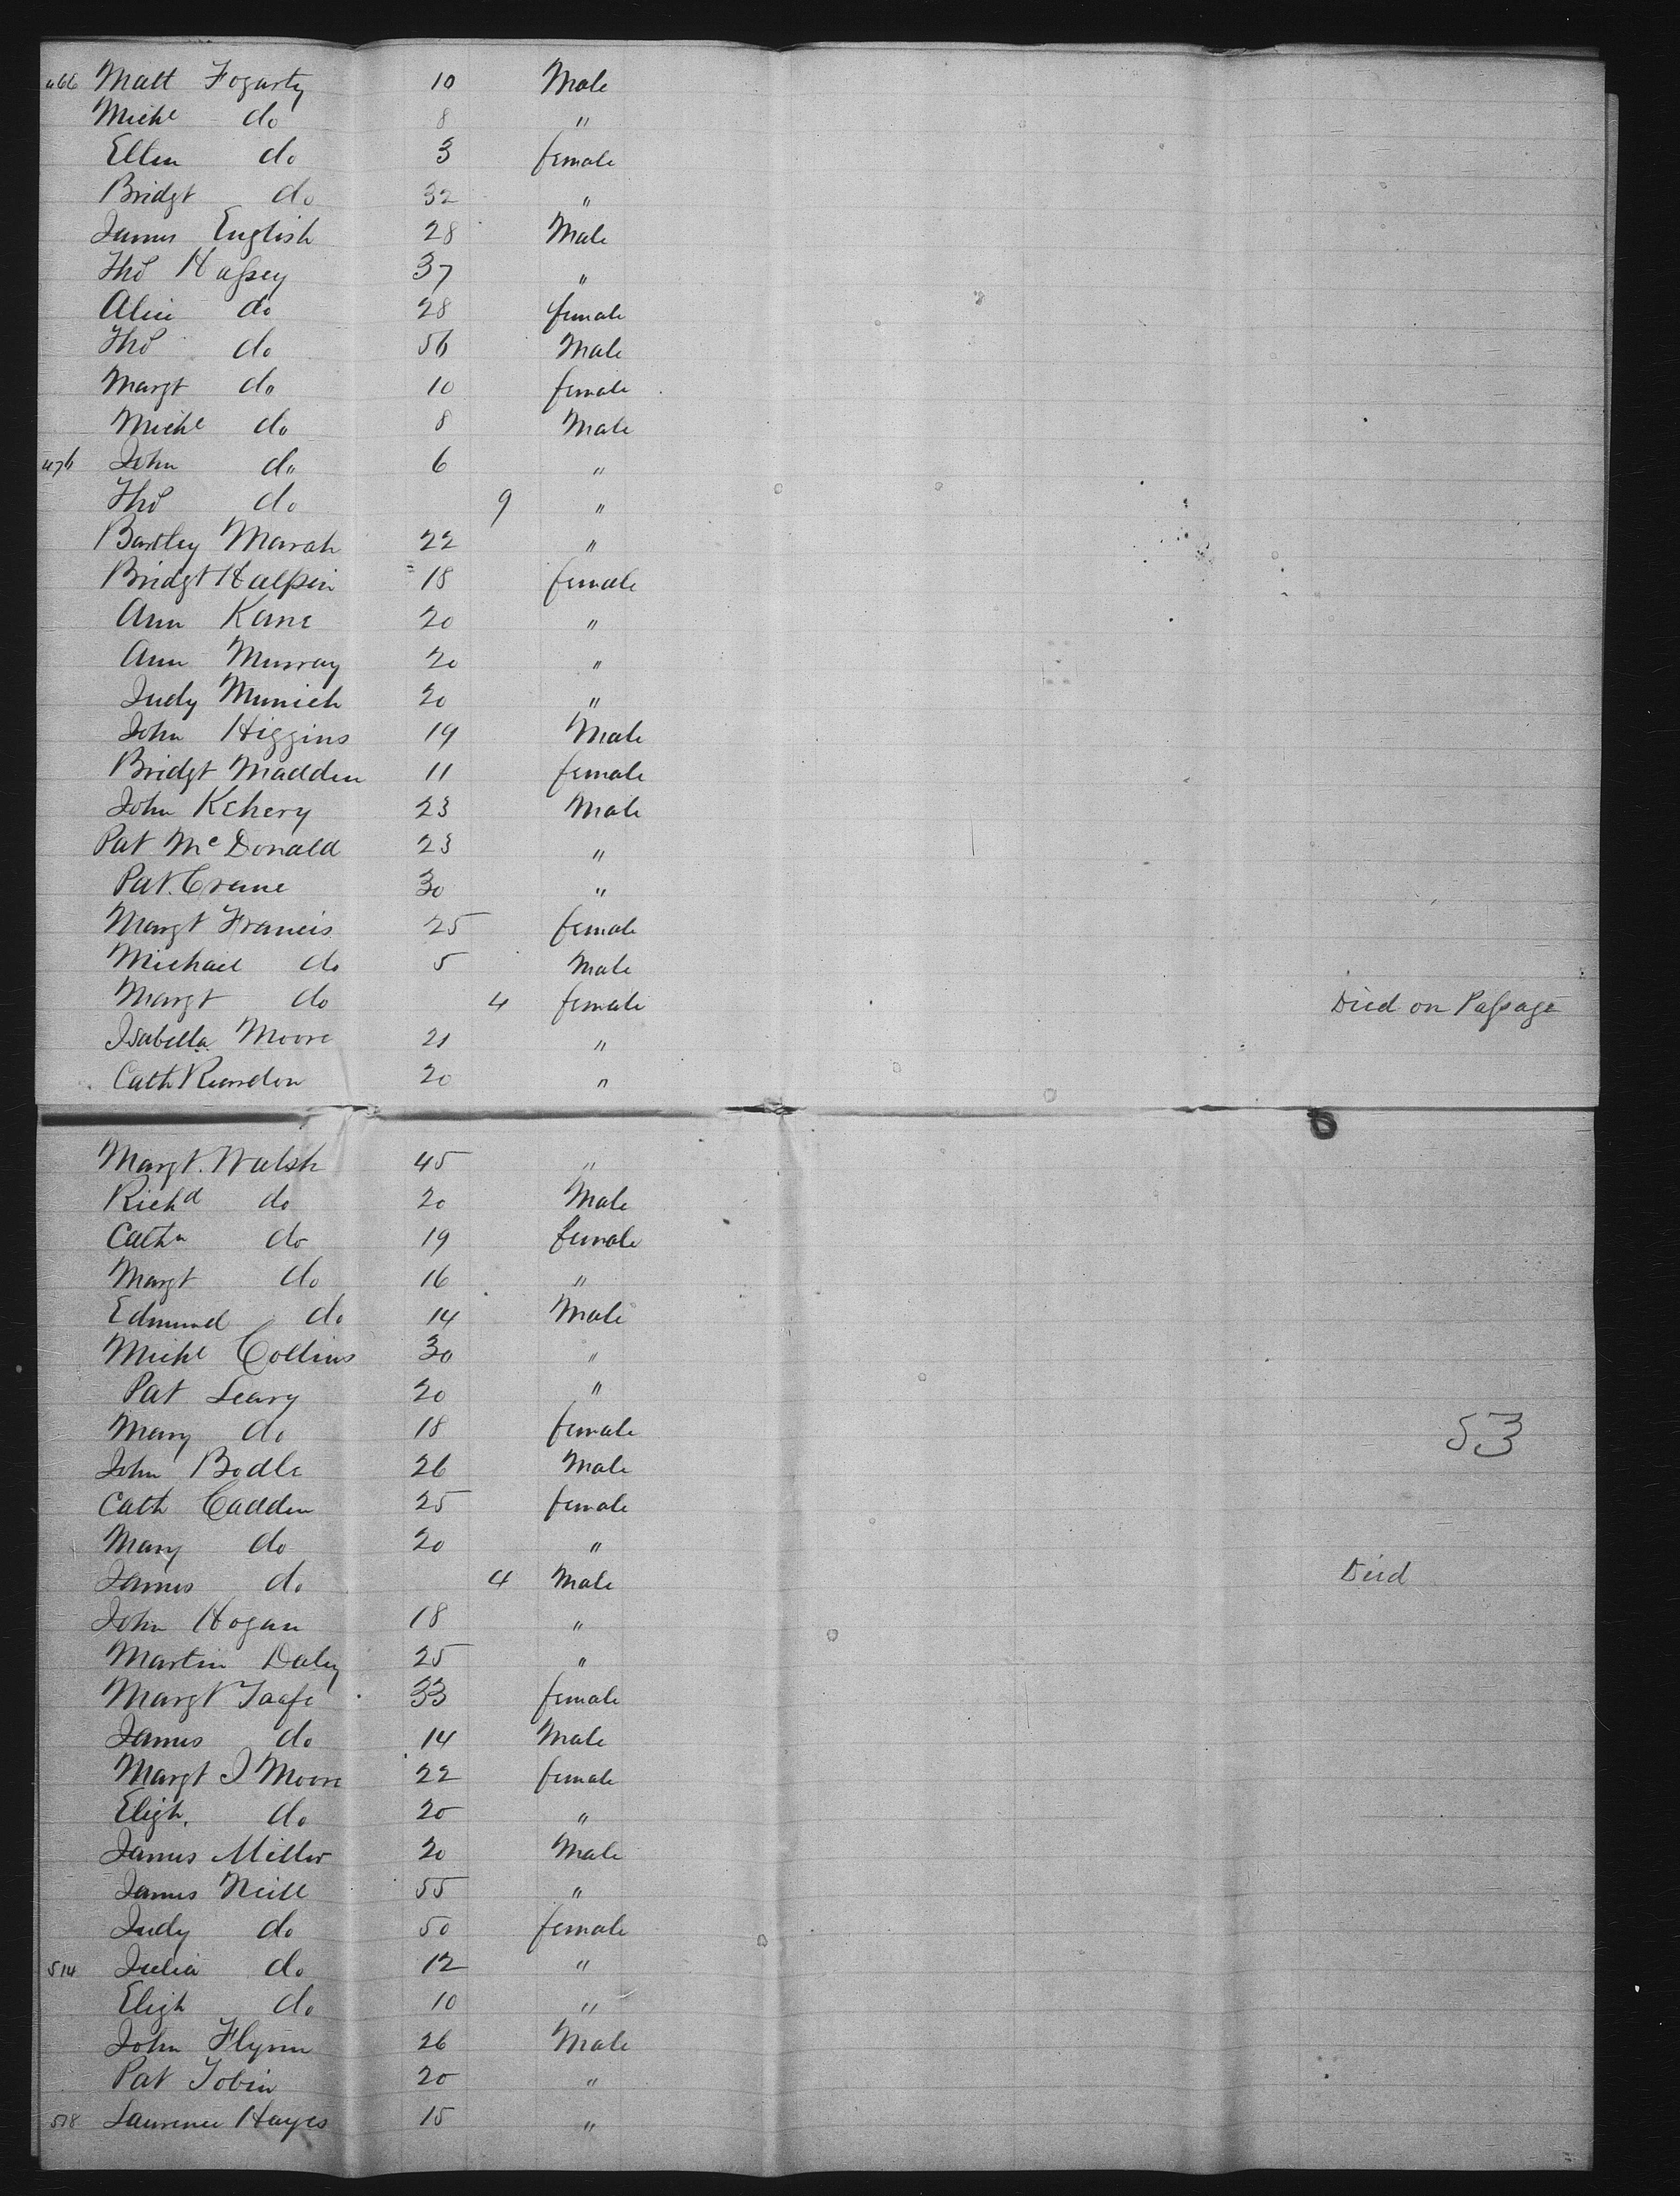 466 Matt Fogarty 10 Male
Michl do 8 "
Ellen do 3 female
Bridgt do 32 "
James English 28 Male
Thos Hassey 37 "
Alice do 28 female
Thos do 56 Male
Margt do 10 female
Michl do 8 Male
476 John do 6 "
Thos do 9 "
Bartley Marah 22 "
Bridgt Halpin 18 female
Ann Kane 20 "
Ann Murray 20 "
Judy Munich 20 "
John Higgins 19 Male
Bridgt Madden 11 female
John Kehery 23 Male
Pat McDonald 23 "
Pat. Crane 30 "
Margt Francis 25 female
Michael do 5 Male
Margt do 4 female Died on Passage
Isabella Moore 21 "
Cath Reardon 20 "
Margt. Walsh 45 "
Richd do 20 Male
Cathn do 19 female
Margt do 16 "
Edmund do 14 Male
Michl Collins 30 "
Pat Leary 20 "
Mary do 18 female
53
John Bodle 26 Male
Cath Cadden 25 female
Mary do 20 "
James do 4 Male Died
John Hogan 18 "
Martin Daly 25 "
Margt Taafe 33 female
James do 14 Male
Margt J Moore 22 female
Eligh. do 20 "
James Miller 20 Male
James Neill 55 "
Judy do 50 female
514 Julia do 12 "
Eligh do 10 "
John Flynn 26 Male
Pat Tobin 20 "
518 Laurence Hayes 15 "